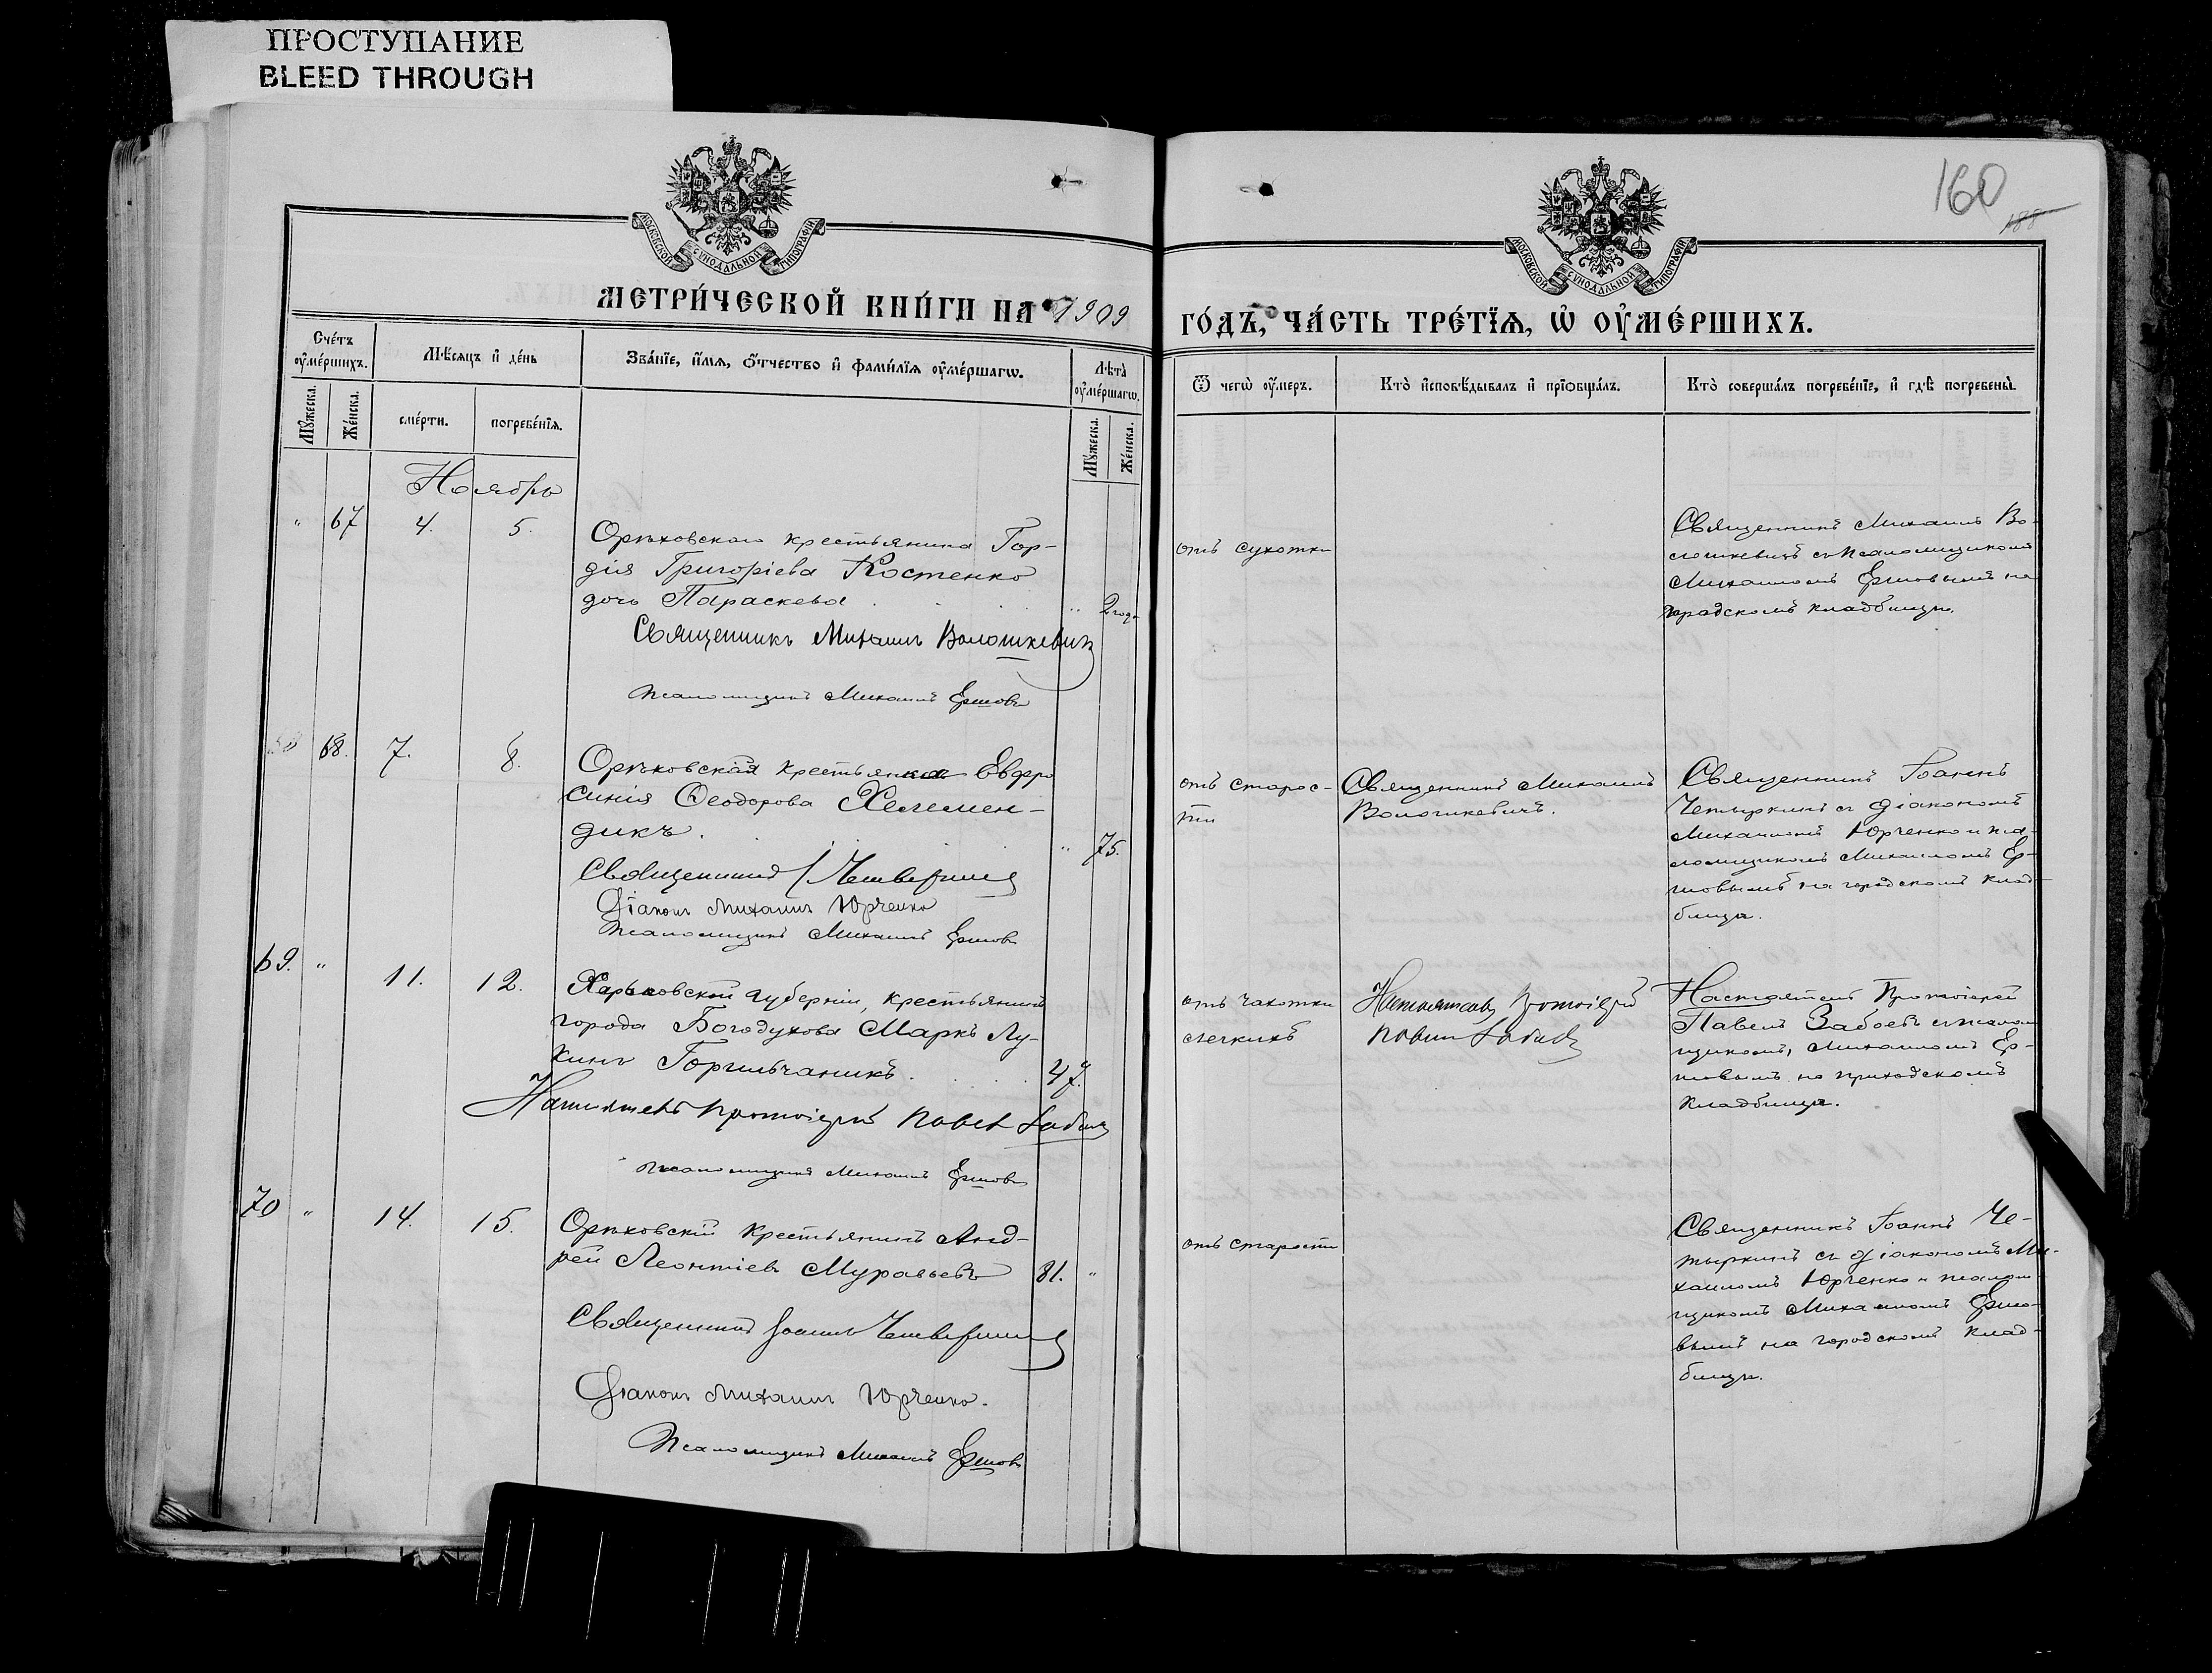 ПРОСТУПАНИЕ
BLEED THROUGH
160
188
МОСКОВСКОЙ СУНОДАЛЬНОЙ ТИПОГРАФІИ
МОСКОВСКОЙ СУНОДАЛЬНОЙ ТИПОГРАФІИ
МЕТРИ́ЧЕСКОЙ КНИ́ГИ НА 1909
ГО́ДЪ, ЧА́СТЬ ТРЕ́ТІѦ, Ѡ҆ ОУ҆МЕ́РШИХЪ.
Сче́тъ оу҆ме́ршихъ.
Мꙋ́жеска.
Же́нска.
Мѣ́сѧцъ и҆ де́нь
сме́рти.
погребе́нїѧ.
Зва́нїе, и҆́мѧ, ѻ҆́тчество и҆ фами́лїѧ оу҆ме́ршагѡ.
Лѣ́та оу҆ме́ршагѡ.
Мꙋ́жеска.
Же́нска.
Ѿ чегѡ̀ оу҆́меръ.
Кто̀ и҆сповѣ́дывалъ и҆ прїѡбща́лъ.
Кто̀ соверша́лъ погребе́нїе, и҆ гдѣ̀ погребены̀.
Ноябрь
" 67 4. 5.
Орѣховскаго крестьянина Гор-
дія Григоріева Костенко
дочь Параскева " 2 год.
Священникъ Михаилъ Волошкевичъ
Псаломщикъ Михаилъ Ершовъ
отъ сухотки
Священникъ Михаилъ Во-
лошкевичъ съ псаломщикомъ
Михаиломъ Ершовымъ на
городскомъ кладбищѣ.
68. 7. 8.
Орѣховская крестьянка Евфро
синія Ѳеодорова Хелемен-
дикъ. " 75.
Священникъ І. Четыркинъ
Діаконъ Михаилъ Юрченко
Псаломщикъ Михаилъ Ершовъ
отъ старос-
ти
Священникъ Михаилъ
Волошкевичъ.
Священникъ Іоаннъ
Четыркинъ съ діакономъ
Михаиломъ Юрченко и пса-
ломщикомъ Михаиломъ Ер-
шовымъ на городскомъ клад-
бищѣ.
69. " 11. 12.
Харьковской губерніи, крестьянинъ
города Богодухова Маркъ Лу-
кинъ 47.
Настоятель Протоіерей Павелъ
Псаломщикъ Михаилъ Ершовъ
отъ чахотки
легкихъ
Настоятель Протоіерей
Павелъ
Настоятель Протоіерей
Павелъ съ псалом
щикомъ, Михаиломъ Ер-
шовымъ на приходскомъ
кладбищѣ.
70 " 14. 15.
Орѣховскій крестьянинъ Анд-
рей Леонтіевъ Муравьевъ 81. "
Священникъ Іоаннъ Четыркинъ
Діаконъ Михаилъ Юрченко.
Псаломщикъ Михаилъ Ершовъ
отъ старости
Священникъ Іоаннъ Че-
тыркинъ съ діакономъ Ми-
хаиломъ Юрченко и псалом-
щикомъ Михаиломъ Ершо-
вымъ на городскомъ клад-
бищѣ.